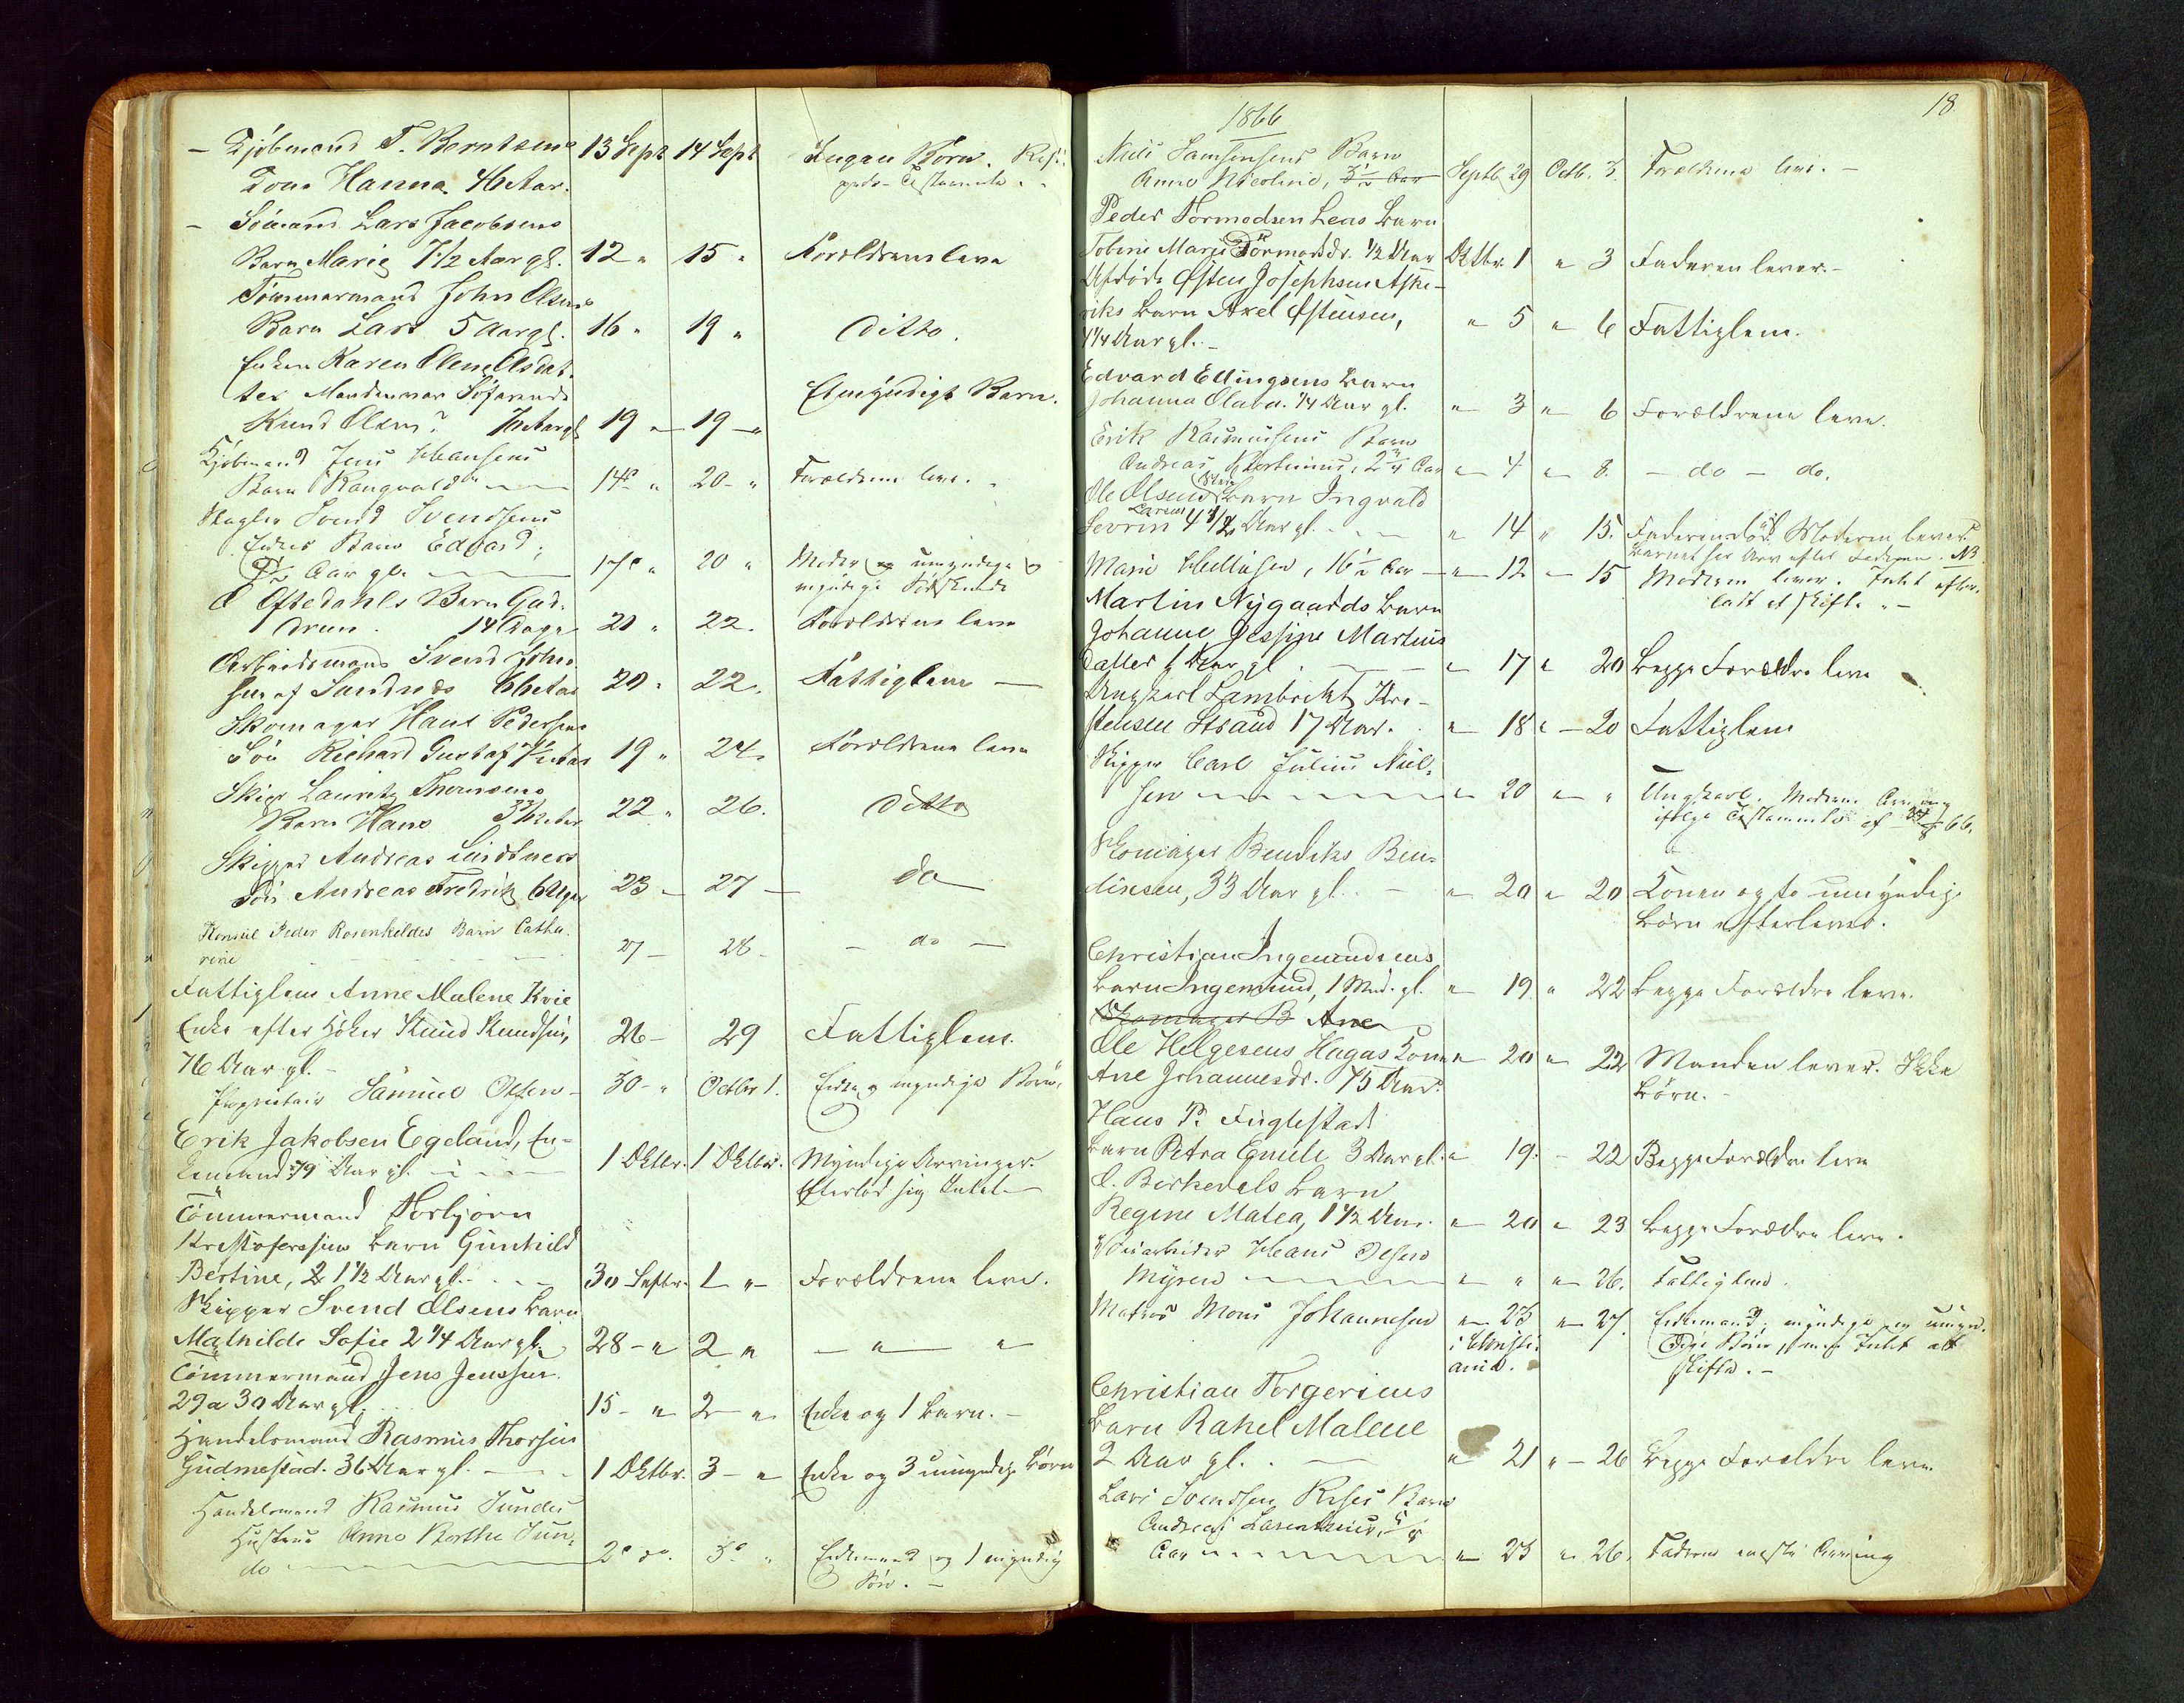 – Kjøbmand T. Berntsens 13 Sept 14 Sept Ingen Børn.
Kone Hanna 46 Aar.
– Sømand Lars Jacobsens
Barn Marie 1 1/2 Aar gl. 12 " 15 " Forældrene leve
Tømmermand John Olsens
Barn Lars 5 Aar gl. 16 " 19 " Ditto.
Enken Karen Olene Olsdat-
ter Manden var Søfarende Umyndigt Barn.
Knud Olsen? Aar gl 19 – 19 – "
Kjøbmand Jens Hansens
Barn Rangvald 14 " 20 – " Forældrene leve.
Svend Svendsens
Enkes Barn Edvard,
Aar gl. 17 " 20 " Moder og umyndige &
myndige Sødskende
O Oftedahls Barn Gud-
drun. 14 Dage 20 " 22. Forældrene leve
Arbeidsmand Svend John-
sen af Sandnes 66 Aar 20 " 22. Fattiglem –
Skomager Hans Pedersens
Søn Richard Gustaf Aar 19 " 24. Forældrene leve
Lauritz Thomsens
Barn Hans Aar 22 " 26. Ditto
Skipper Andreas Lindtners
Søn Andreas Fredrik 6 Uger 23 – 27 – do
Konsul Peder Rosenkildes Barn Catha-
rine 27 – 28 – – do –
Fattiglem Anne Malene Kvie
Enke efter Høker Knud Knudsen, 26 – 29 Fattiglem.
76 Aar gl. –
Samuel Olsen – 30 – " Octbr 1. Enke og myndige Børn.
Erik Jakobsen Egeland, En-
kemand 79 Aar gl. 1 Oktbr. 1 Oktbr. Myndige Arvinger.
Efterlod sig Intet –
Tømmermand Torbjørn
Kristofersens Barn Gunhild
Bertine, 1 1/2 Aar gl. 30 Septbr. 1 " Forældrene leve.
Skipper Svend Olsens Barn
Mathilde Sofie 2 1/4 Aar gl. 28 – " 2 " – " "
Tømmermand Jens Jenssen
29 a 30 Aar gl. 15 – " 2 " Enke og 1 Barn. –
Handelsmand Rasmus Thorsen
Gudmestad. 36 Aar gl. 1 Oktbr. 3 – " Enke og 3 umyndige Børn
Handelsmand Rasmus Sundes
Hustru Anna Berthe Sun-
de 2 do. 3 " Enkemand og 1 myndig
Søn. –
1866 18
Niels Samsonsens Barn
Anne Nicoline, Aar Septb 29 Octb. 3. Forældrene leve. –
Peder Tormodsen Leas Barn
Tobine Marie Tormodsdr. 1/2 Aar Oktbr. 1 " 3 Faderen lever. –
Afdøde Østen Josephsen Aske-
viks Barn Axel Østensen, " 5 " 6 Fattiglem.
1 1/4 Aar gl. –
Edvard Ellingsens Barn
Johanna Olava. 1/4 Aar gl. " 3 " 6 Forældrene leve.
Erik Rasmussens Barn
Andreas Martinius, Aar " 4 " 8. – do – do.
Ole Olsens Barn Ingvald
Sevrin Aar gl. " 14 " 15. Faderen død. Moderen lever.
Barnet har Arv efter Faderen. NB.
Marie Aar – " 12 – 15 Moderen lever. Intet efter-
ladt at skifte. –
Martin Nygaards Barn
Johanne Jessine Martins-
datter Aar gl. " 17 " 20 Begge Forældre leve
Ungkarl Lambrekt Kri-
stensen Strand 17 Aar. " 18 " – 20 Fattiglem
Skipper Carl Julius Niel-
sen " 20 " " Ungkarl. Moderen Arving
ifølge Testamente af 66.
Skomager Bendiks Ben-
diksen, 33 Aar gl. – " 20 " 20 Konen og to umyndige
Børn efterlever.
Christian Ingemundsens
Barn Ingemund, 1 Mnd. gl. " 19. " 22 Begge Forældre leve.
Skomager B Ane
Ole Helgesens Hagas Kone " 20 " 22 Manden lever. Ikke
Ane Johannesdr. 75 Aar. Børn. –
Hans P. Fuglestads
Barn Petra Emilie 3 Aar gl. " 19. – 22 Begge Forældre leve
C. Birkedals Barn
Regine Matea, 1 1/2 Aar. " 20 " 23 Begge Forældre leve.
Hans Olsen
Myren " " " 26. Fattiglem.
Matros Mons Johannesen " 23 " 27. Enkemand; myndige og umyn-
i Christi- dige Børn, men Intet at
ania. skifte. –
Christian Torgersens
Barn Rakel Malene
2 Aar gl. – " 21 " – 26 Begge Forældre leve
Lars Svendsen Barn
Andreas Laurentius,
Aar " 23 " 26. Faderen eneste Arving